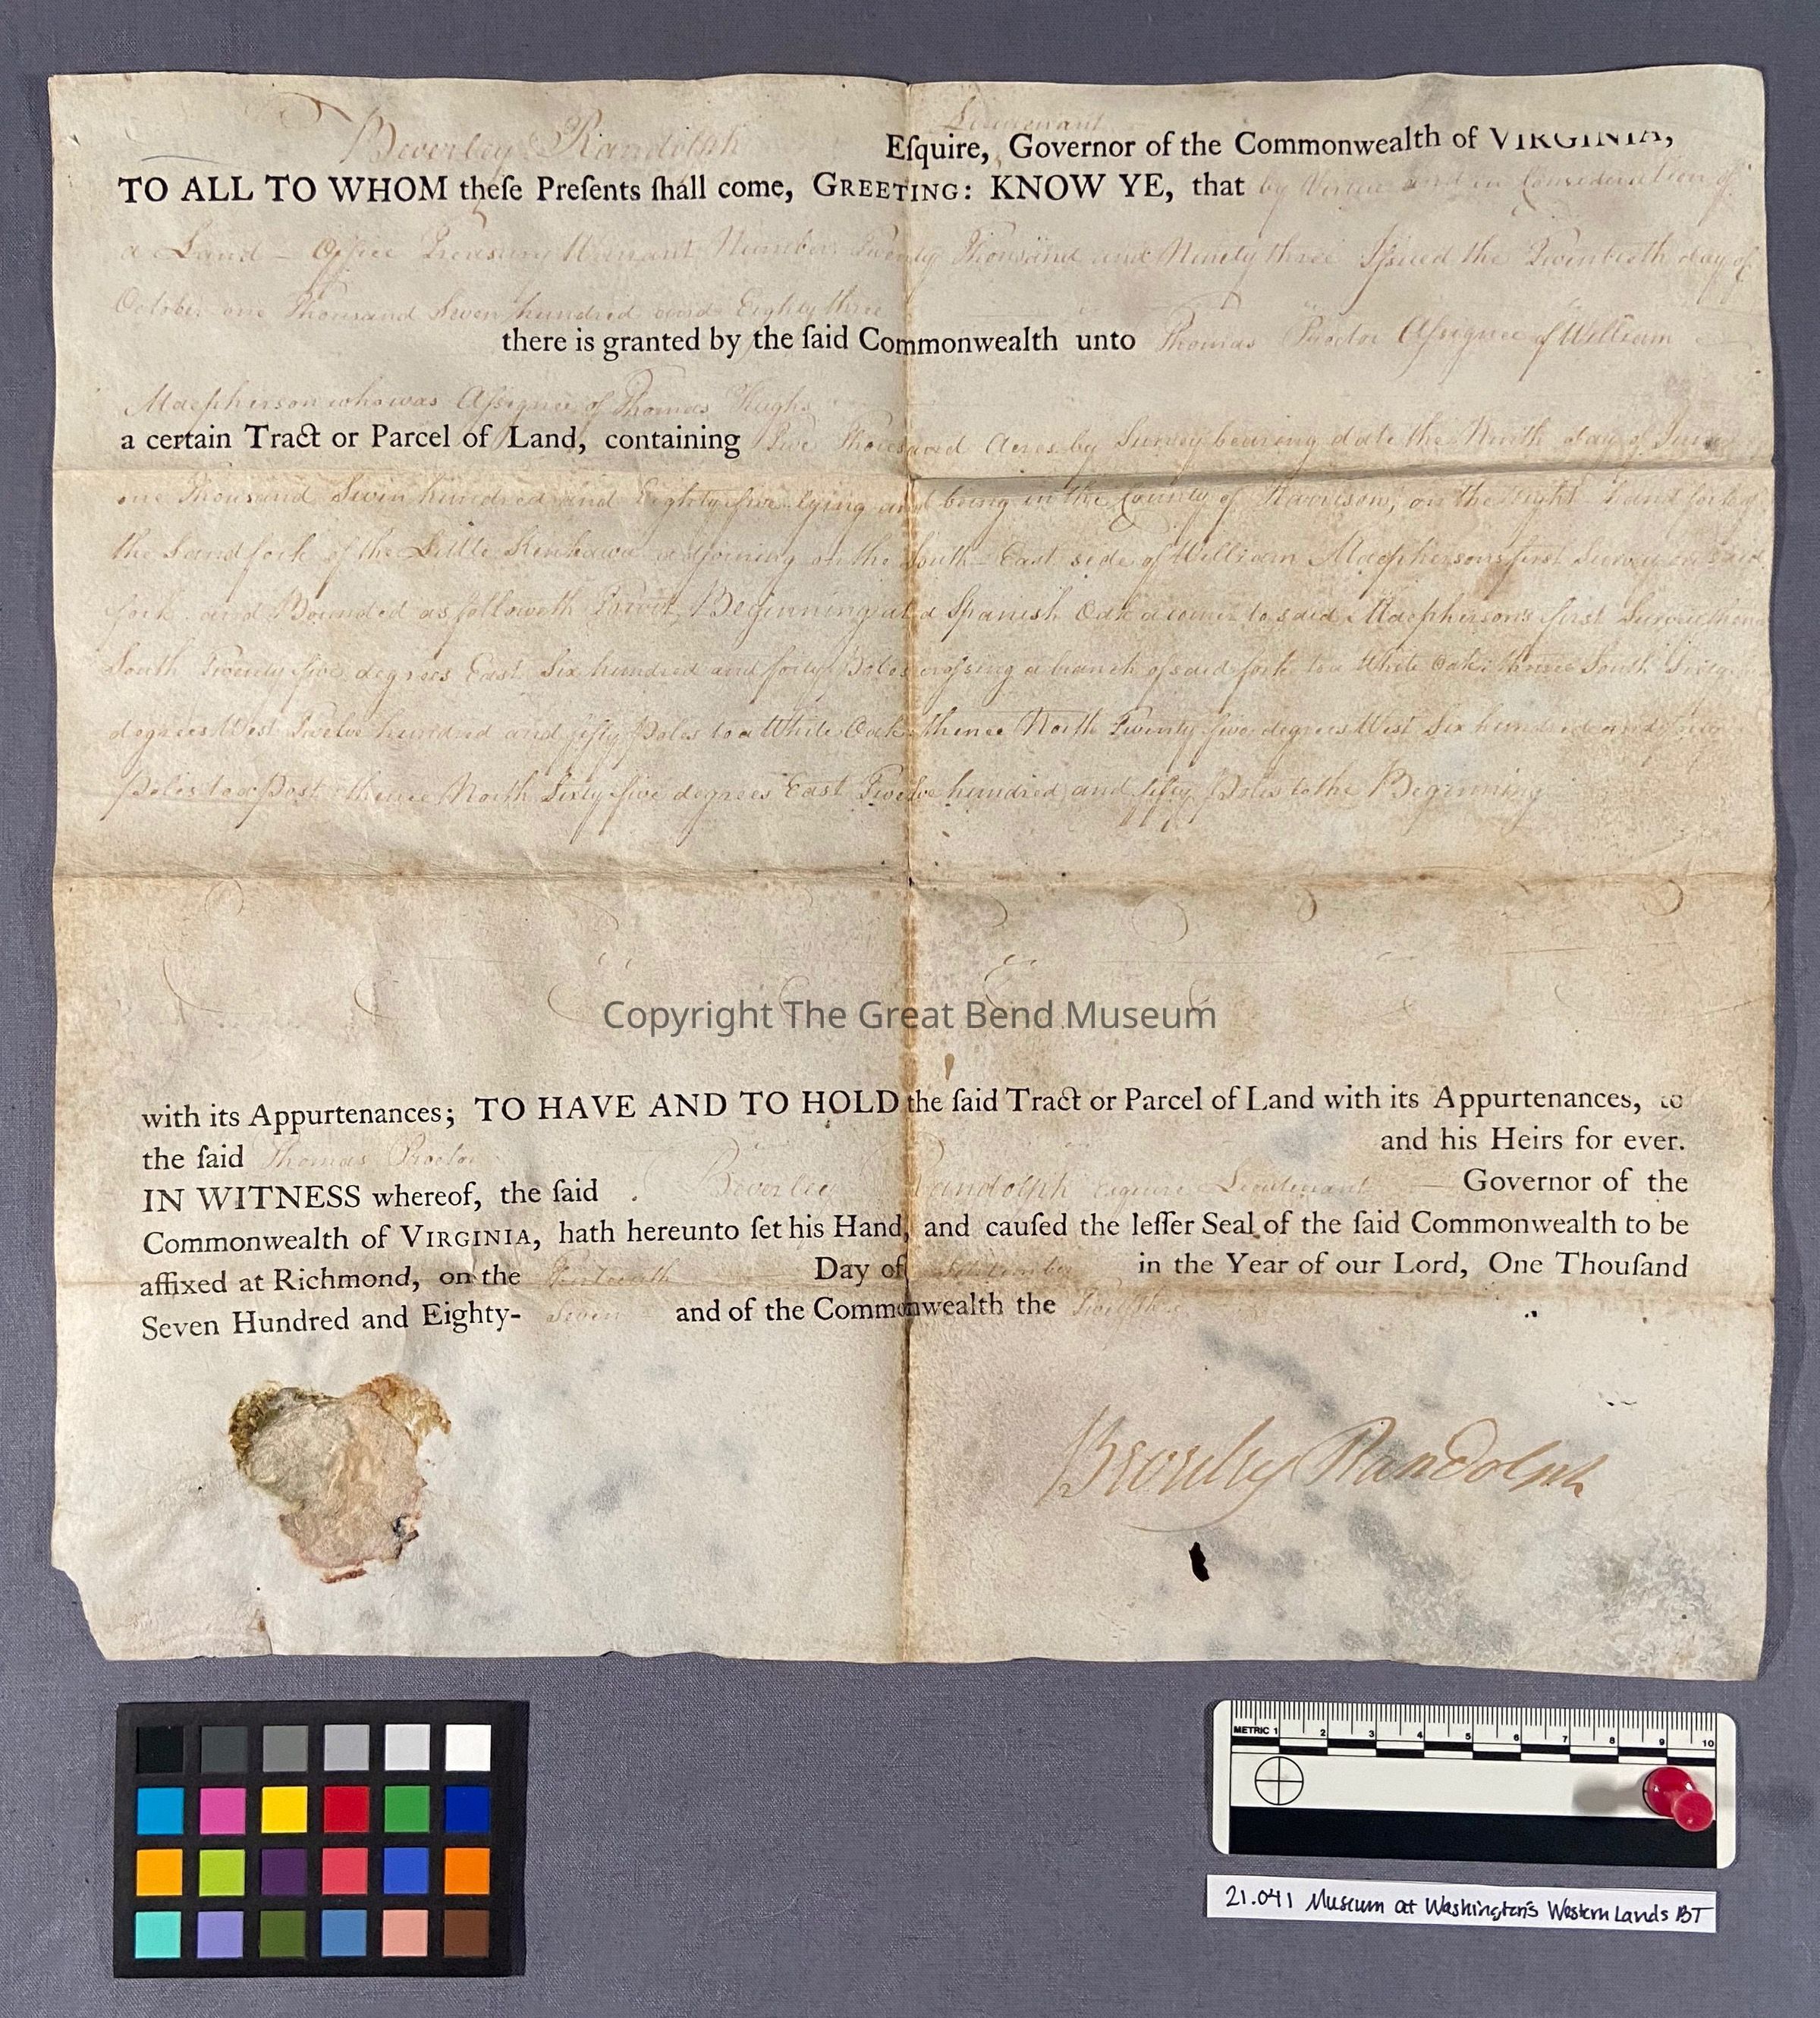 Beverley Randolph Lieutenant
Eſquire, Governor of the Commonwealth of VIRGINIA,
TO ALL TO WHOM theſe Preſents ſhall come, GREETING: KNOW YE, that by Virtue and in Consideration of
a Land - Office Treasury Warrant Number Twenty Thousand and Ninety three Iſsued the Twentieth day of
October one Thousand Seven hundred and Eighty three
there is granted by the ſaid Commonwealth unto Thomas Proctor Aſsignee of William
Macpherson who was Aſsignee of Thomas Hughs
a certain Tract or Parcel of Land, containing Five Thousand Acres by Survey bearing date the Ninth day of
one Thousand Seven hundred and Eighty five lying and being in the County of Harrison, on the right hand fork of
the Sand fork of the Little Kenhawa adjoining on the South-East side of William Macphersons first Survey on said
fork and Bounded as followeth towit, Beginning at a Spanish Oak a corner to said Macpherson's first Survey thence
South Twenty five degrees East Six hundred and forty Poles croſsing a branch of said fork to a White Oak thence South
degrees West Twelve hundred and fifty Poles to a White Oak thence North Twenty five degrees West Six hundred and forty
Poles to a Post thence North Sixty five degrees East Twelve hundred and fifty Poles to the Beginning
Copyright The Great Bend Museum
with its Appurtenances; TO HAVE AND TO HOLD the ſaid Tract or Parcel of Land with its Appurtenances, to
the ſaid Thomas Proctor and his Heirs for ever.
IN WITNESS whereof, the ſaid Beverley Randolph esquire Lieutenant Governor of the
Commonwealth of VIRGINIA, hath hereunto ſet his Hand, and cauſed the leſſer Seal of the ſaid Commonwealth to be
affixed at Richmond, on the Day of September in the Year of our Lord, One Thouſand
Seven Hundred and Eighty- seven and of the Commonwealth the Twelfth
Beverley Randolph
METRIC 1 2 3 4 5 6 7 8 9 10
21.041 Museum at Washington's Western Lands BT